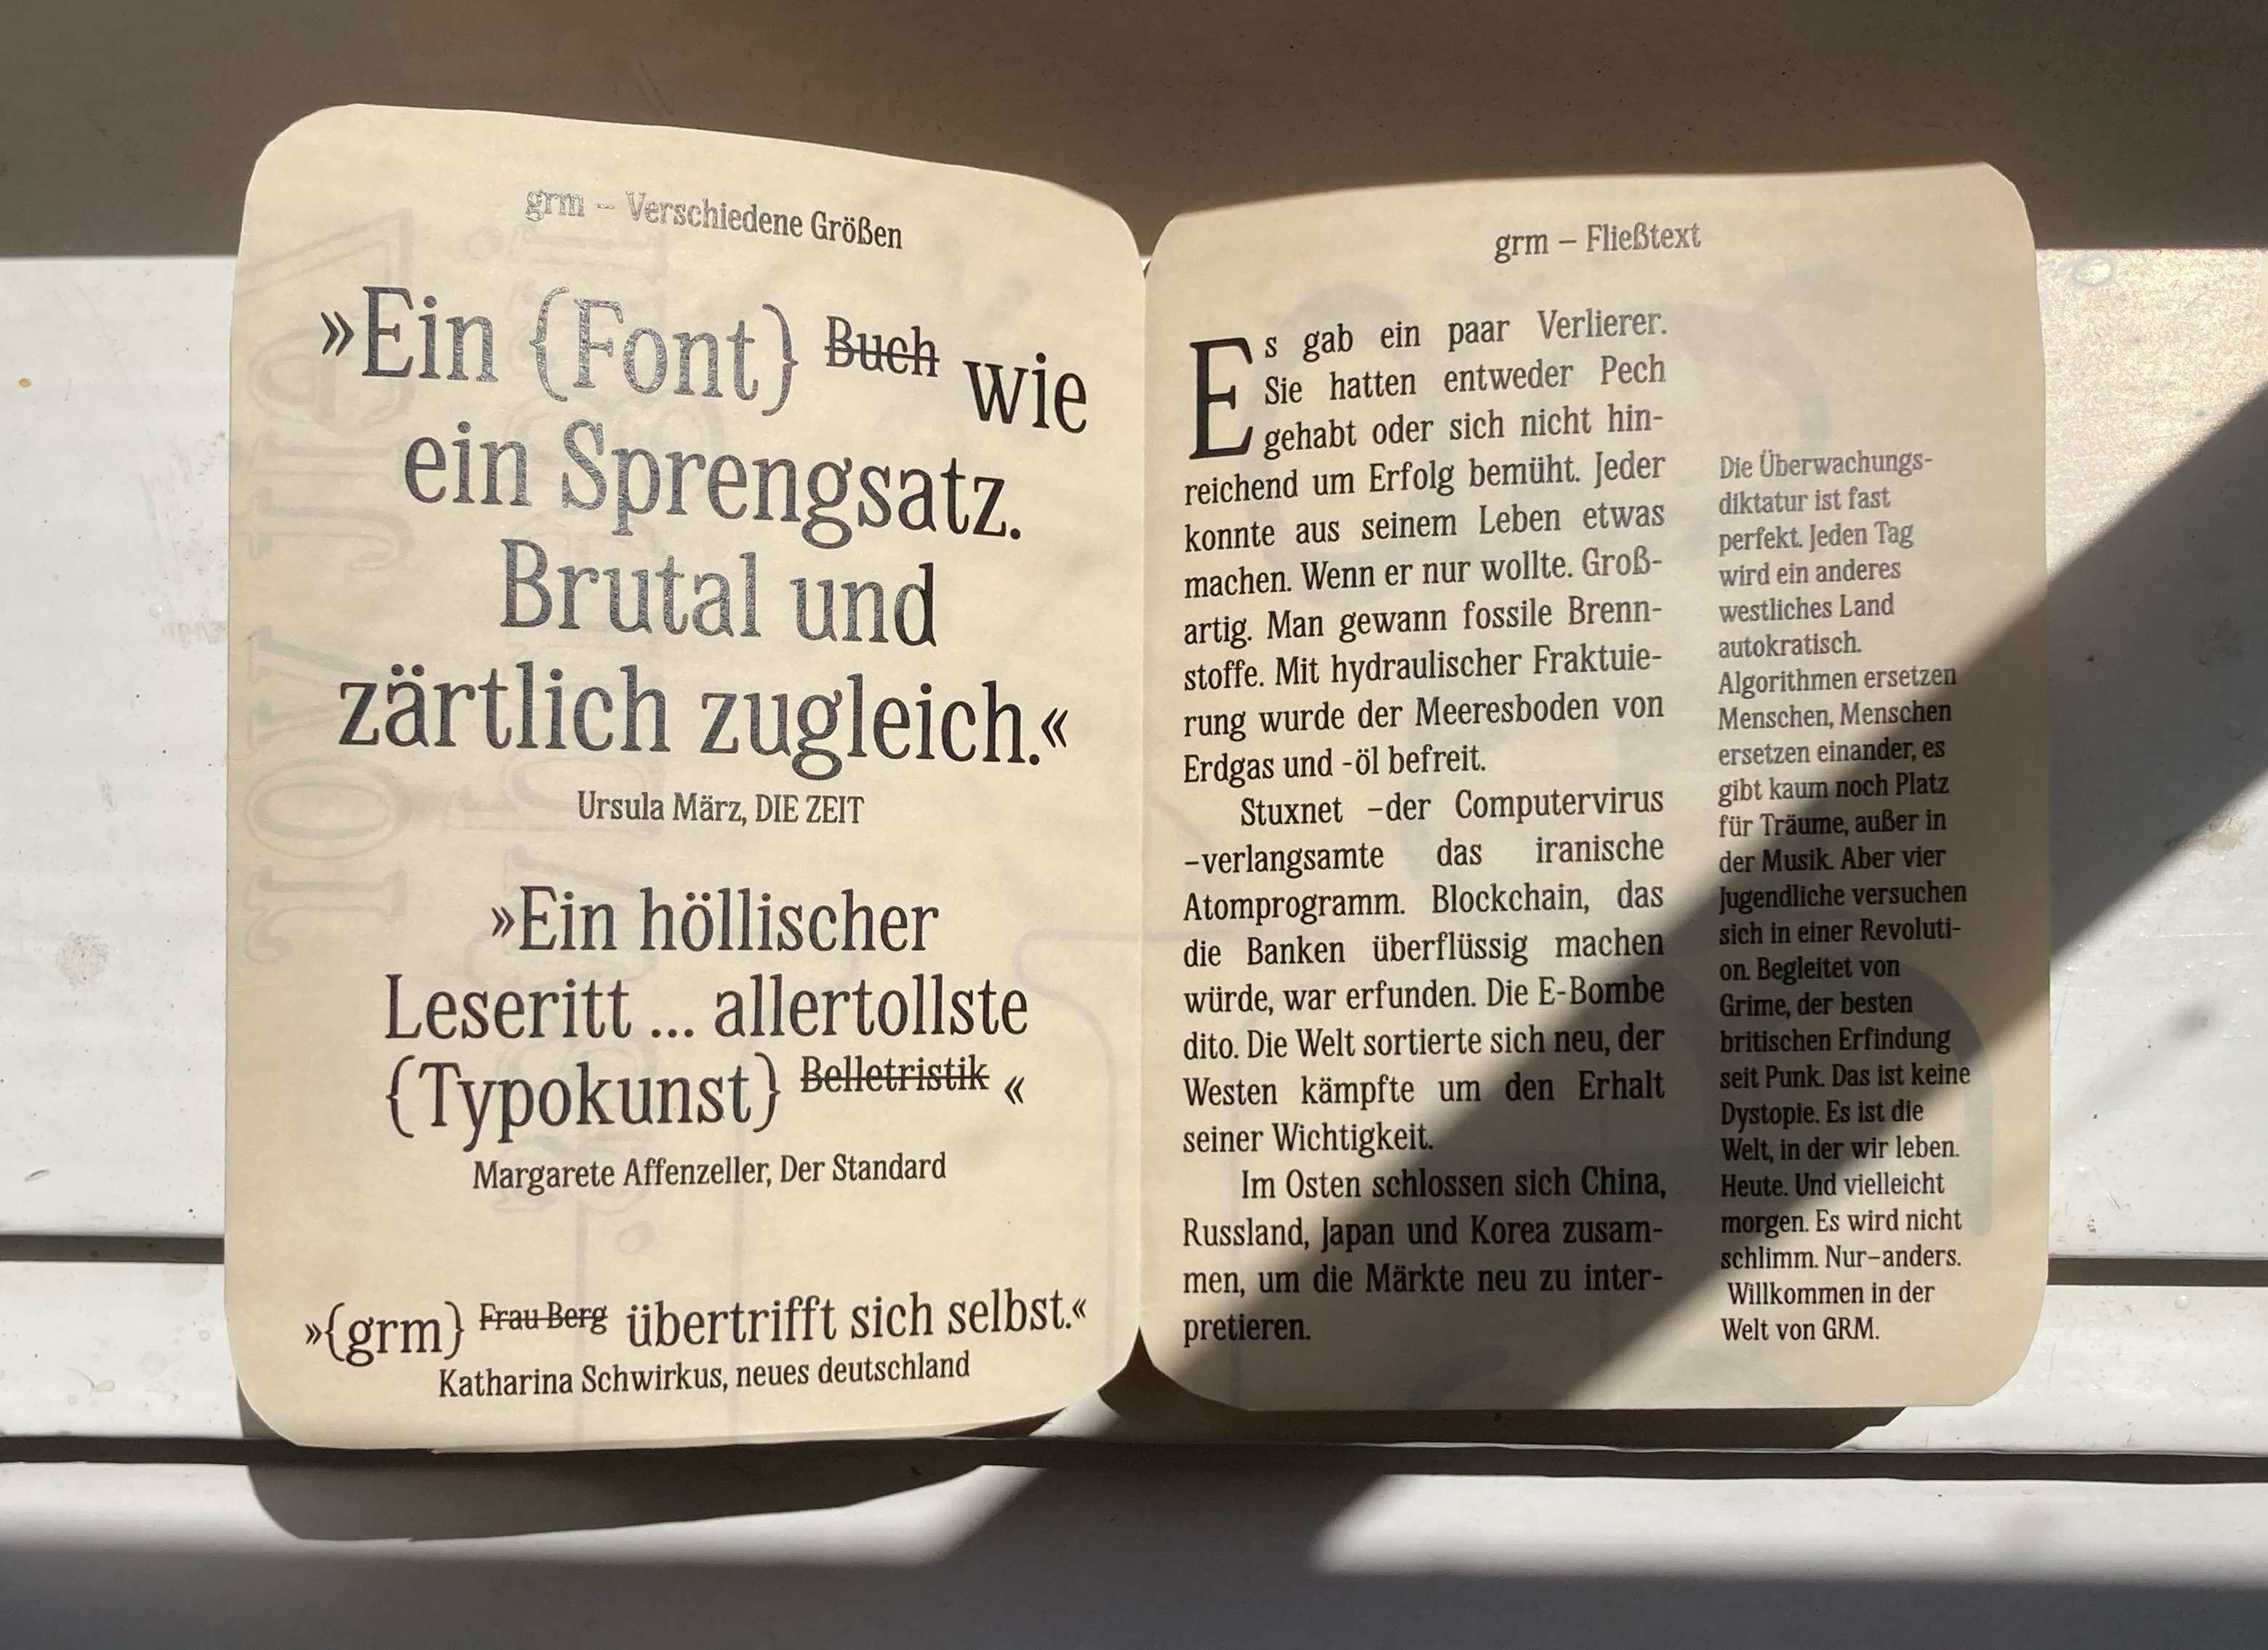 grm – Verschiedene Größen
»Ein {Font} Buch wie
ein Sprengsatz.
Brutal und
zärtlich zugleich.«
Ursula März, DIE ZEIT
»Ein höllischer
Leseritt ... allertollste
{Typokunst} Belletristik «
Margarete Affenzeller, Der Standard
»{grm} Frau Berg übertrifft sich selbst.«
Katharina Schwirkus, neues deutschland
grm – Fließtext
Es gab ein paar Verlierer.
Sie hatten entweder Pech
gehabt oder sich nicht hin-
reichend um Erfolg bemüht. Jeder
konnte aus seinem Leben etwas
machen. Wenn er nur wollte. Groß-
artig. Man gewann fossile Brenn-
stoffe. Mit hydraulischer Fraktuie-
rung wurde der Meeresboden von
Erdgas und -öl befreit.
Stuxnet –der Computervirus
–verlangsamte das iranische
Atomprogramm. Blockchain, das
die Banken überflüssig machen
würde, war erfunden. Die E-Bombe
dito. Die Welt sortierte sich neu, der
Westen kämpfte um den Erhalt
seiner Wichtigkeit.
Im Osten schlossen sich China,
Russland, Japan und Korea zusam-
men, um die Märkte neu zu inter-
pretieren.
Die Überwachungs-
diktatur ist fast
perfekt. Jeden Tag
wird ein anderes
westliches Land
autokratisch.
Algorithmen ersetzen
Menschen, Menschen
ersetzen einander, es
gibt kaum noch Platz
für Träume, außer in
der Musik. Aber vier
Jugendliche versuchen
sich in einer Revoluti-
on. Begleitet von
Grime, der besten
britischen Erfindung
seit Punk. Das ist keine
Dystopie. Es ist die
Welt, in der wir leben.
Heute. Und vielleicht
morgen. Es wird nicht
schlimm. Nur–anders.
Willkommen in der
Welt von GRM.